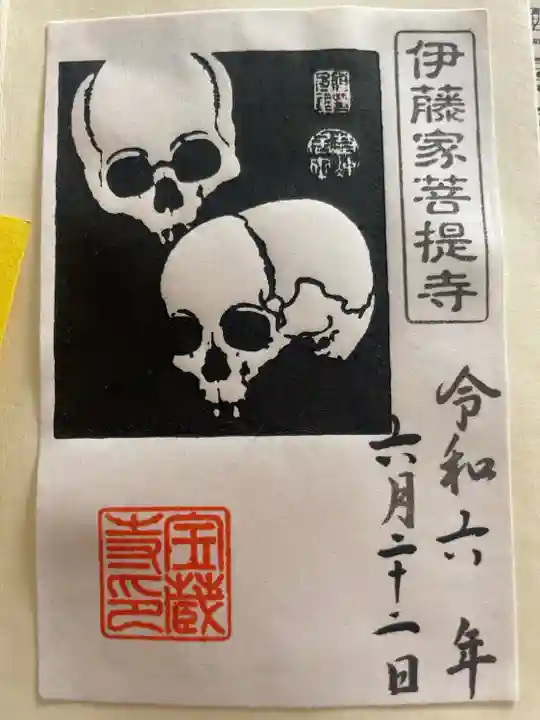 伊藤家菩提寺
令和六年
六月二十二日
宝蔵
寺印